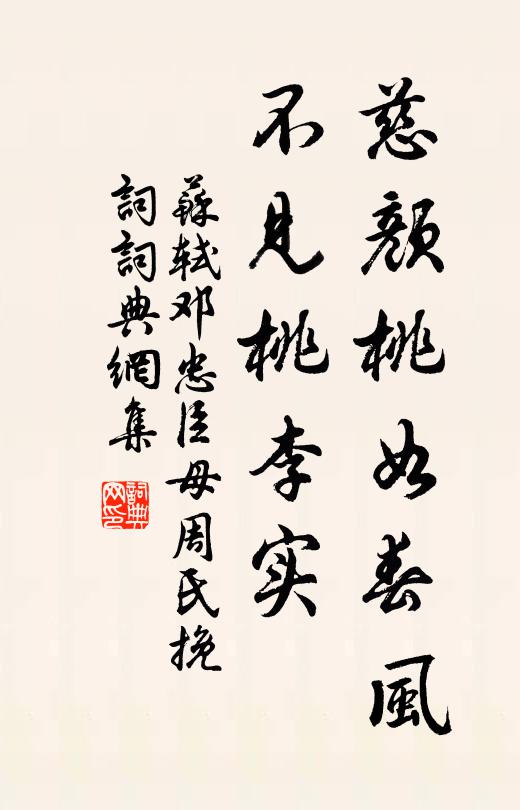 慈顔桃如春風
不見桃李实
蘇軾邓忠臣母周氏挽
詞詞典網集
詞典
网印